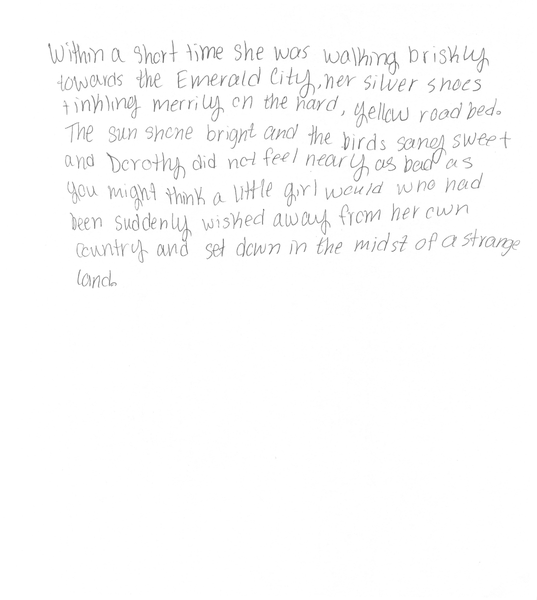 Within a short time she was walking briskly
towards the Emerald City, her silver shoes
tinkling merrily on the hard, yellow road bed.
The sun shone bright and the birds sang sweet
and Dorothy did not feel nearly as bad as
you might think a little girl would who had
been suddenly wished away from her own
country and set down in the midst of a strange
land.